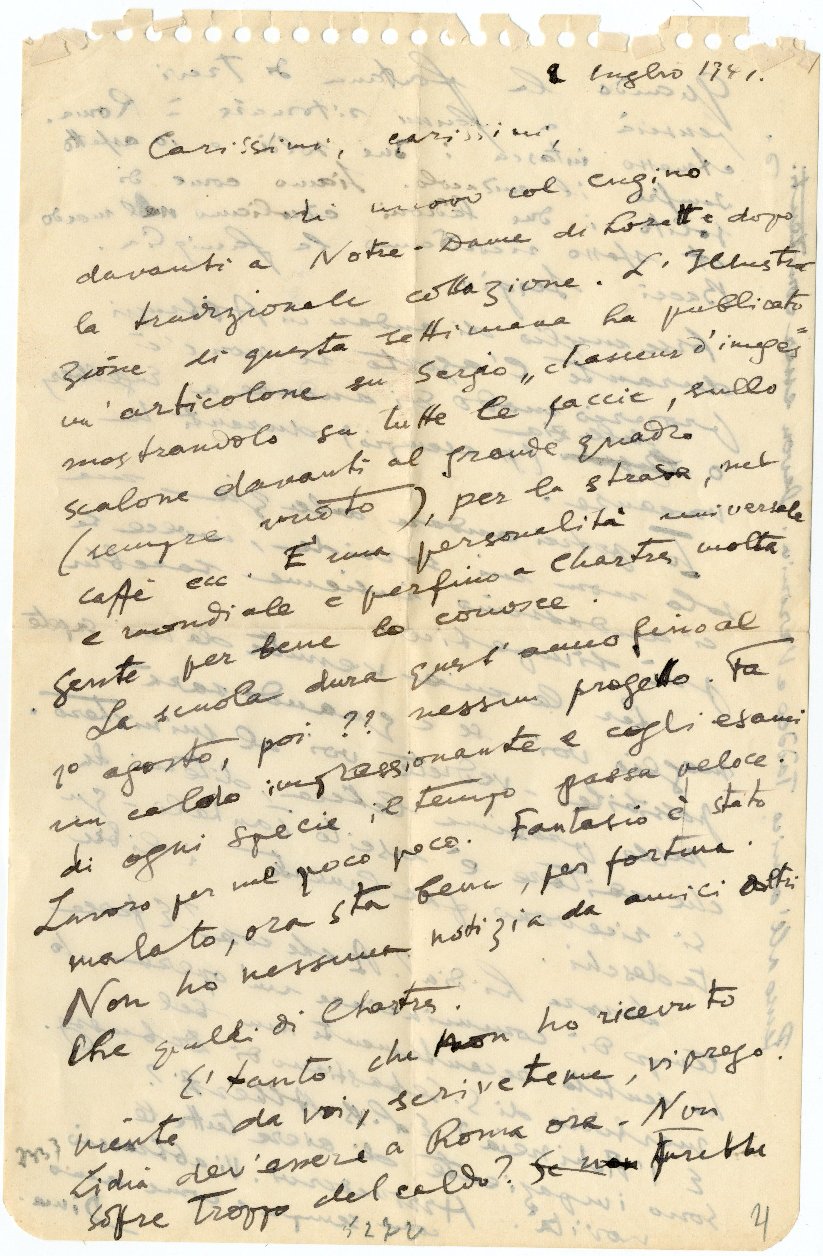 2 luglio 1941.
Carissimi, carissimi,
di nuovo col cugino
davanti a Notre-Dame di Lorette dopo
la tradizionale collazione. L'Illustra
zione di questa settimana ha pubblicato
un'articolone su Sergio „chasseur d'images"
mostrandolo su tutte le faccie, sullo
scalone davanti al grande quadro
(sempre vuoto), per la strada, nel
caffè ecc. E' una personalità universale
e mondiale e perfino a Chartres molta
gente per bene lo conosce.
La scuola dura quest'anno fino al
1º agosto, poi ?? nessun progetto. Fa
un caldo impressionante e cogli esami
di ogni specie il tempo passa veloce.
Lavoro per me poco poco. Fantasio è stato
malato, ora sta bene, per fortuna.
Non ho nessuna notizia da amici altri
che quelli di Chartres.
E' tanto che non ho ricevuto
niente da voi, scriveteme, vi prego.
Lidia dev'essere a Roma ora - Non
soffre troppo del caldo? Se non farebbe
5272
4